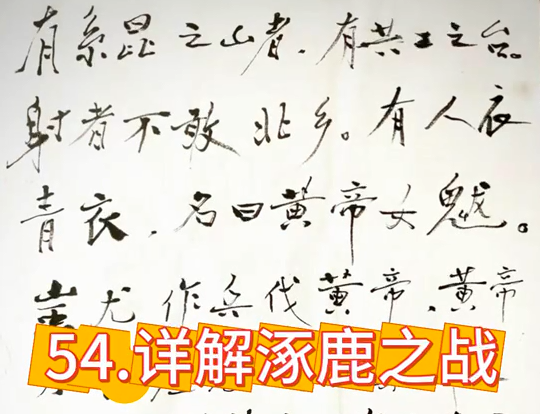 有系昆之山者，有共工之台。
射者不敢北乡。有人衣
青衣，名曰黄帝女魃。
蚩尤作兵伐黄帝，黄帝
54.详解涿鹿之战